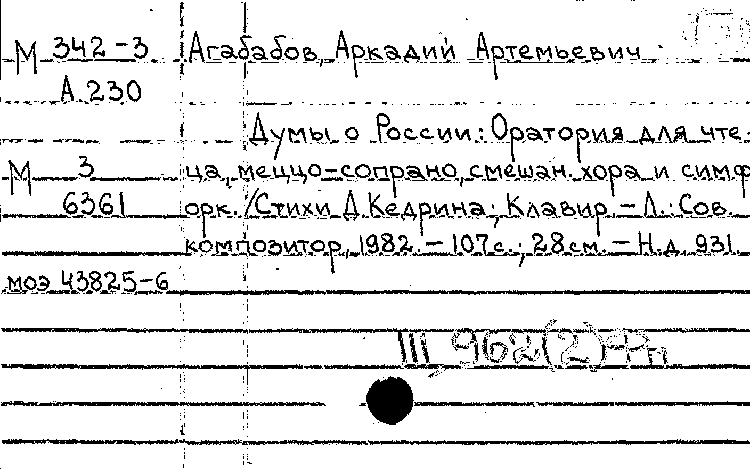 М 342-3 Агабабов, Аркадий Артемьевич.
А 230
Думы о России: Оратория для чте-
М 3 ца, меццо-сопрано, смешан. хора и симф
6361 орк. /Стихи Д. Кедрина; Клавир. - Л.: Сов.
композитор, 1982. - 107с.; 28см. - Н.д. 931.
моэ 43825-6
III 962(2)